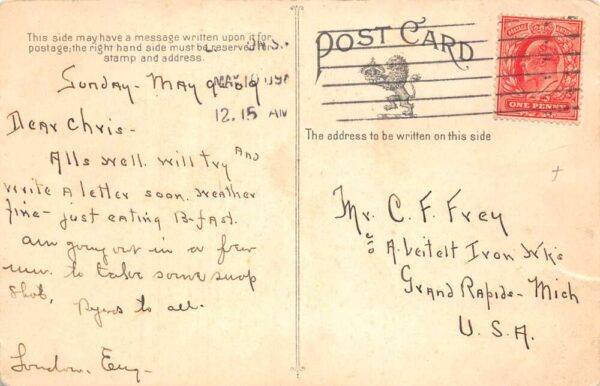 This side may have a message written upon it for
postage; the right hand side must be reserved for
stamp and address.
12.15 AM
Sunday - May
Dear Chris -
Alls well. will try and
write a letter soon. Weather
fine - just eating B-fast.
am going out in a few
min. to take some snap
shots,
to all -
London. Eng -
POST CARD
ONE PENNY
The address to be written on this side
Mr. C. F. Frey
c/o A. Leitelt Iron Wks
Grand Rapids - Mich
U. S. A.